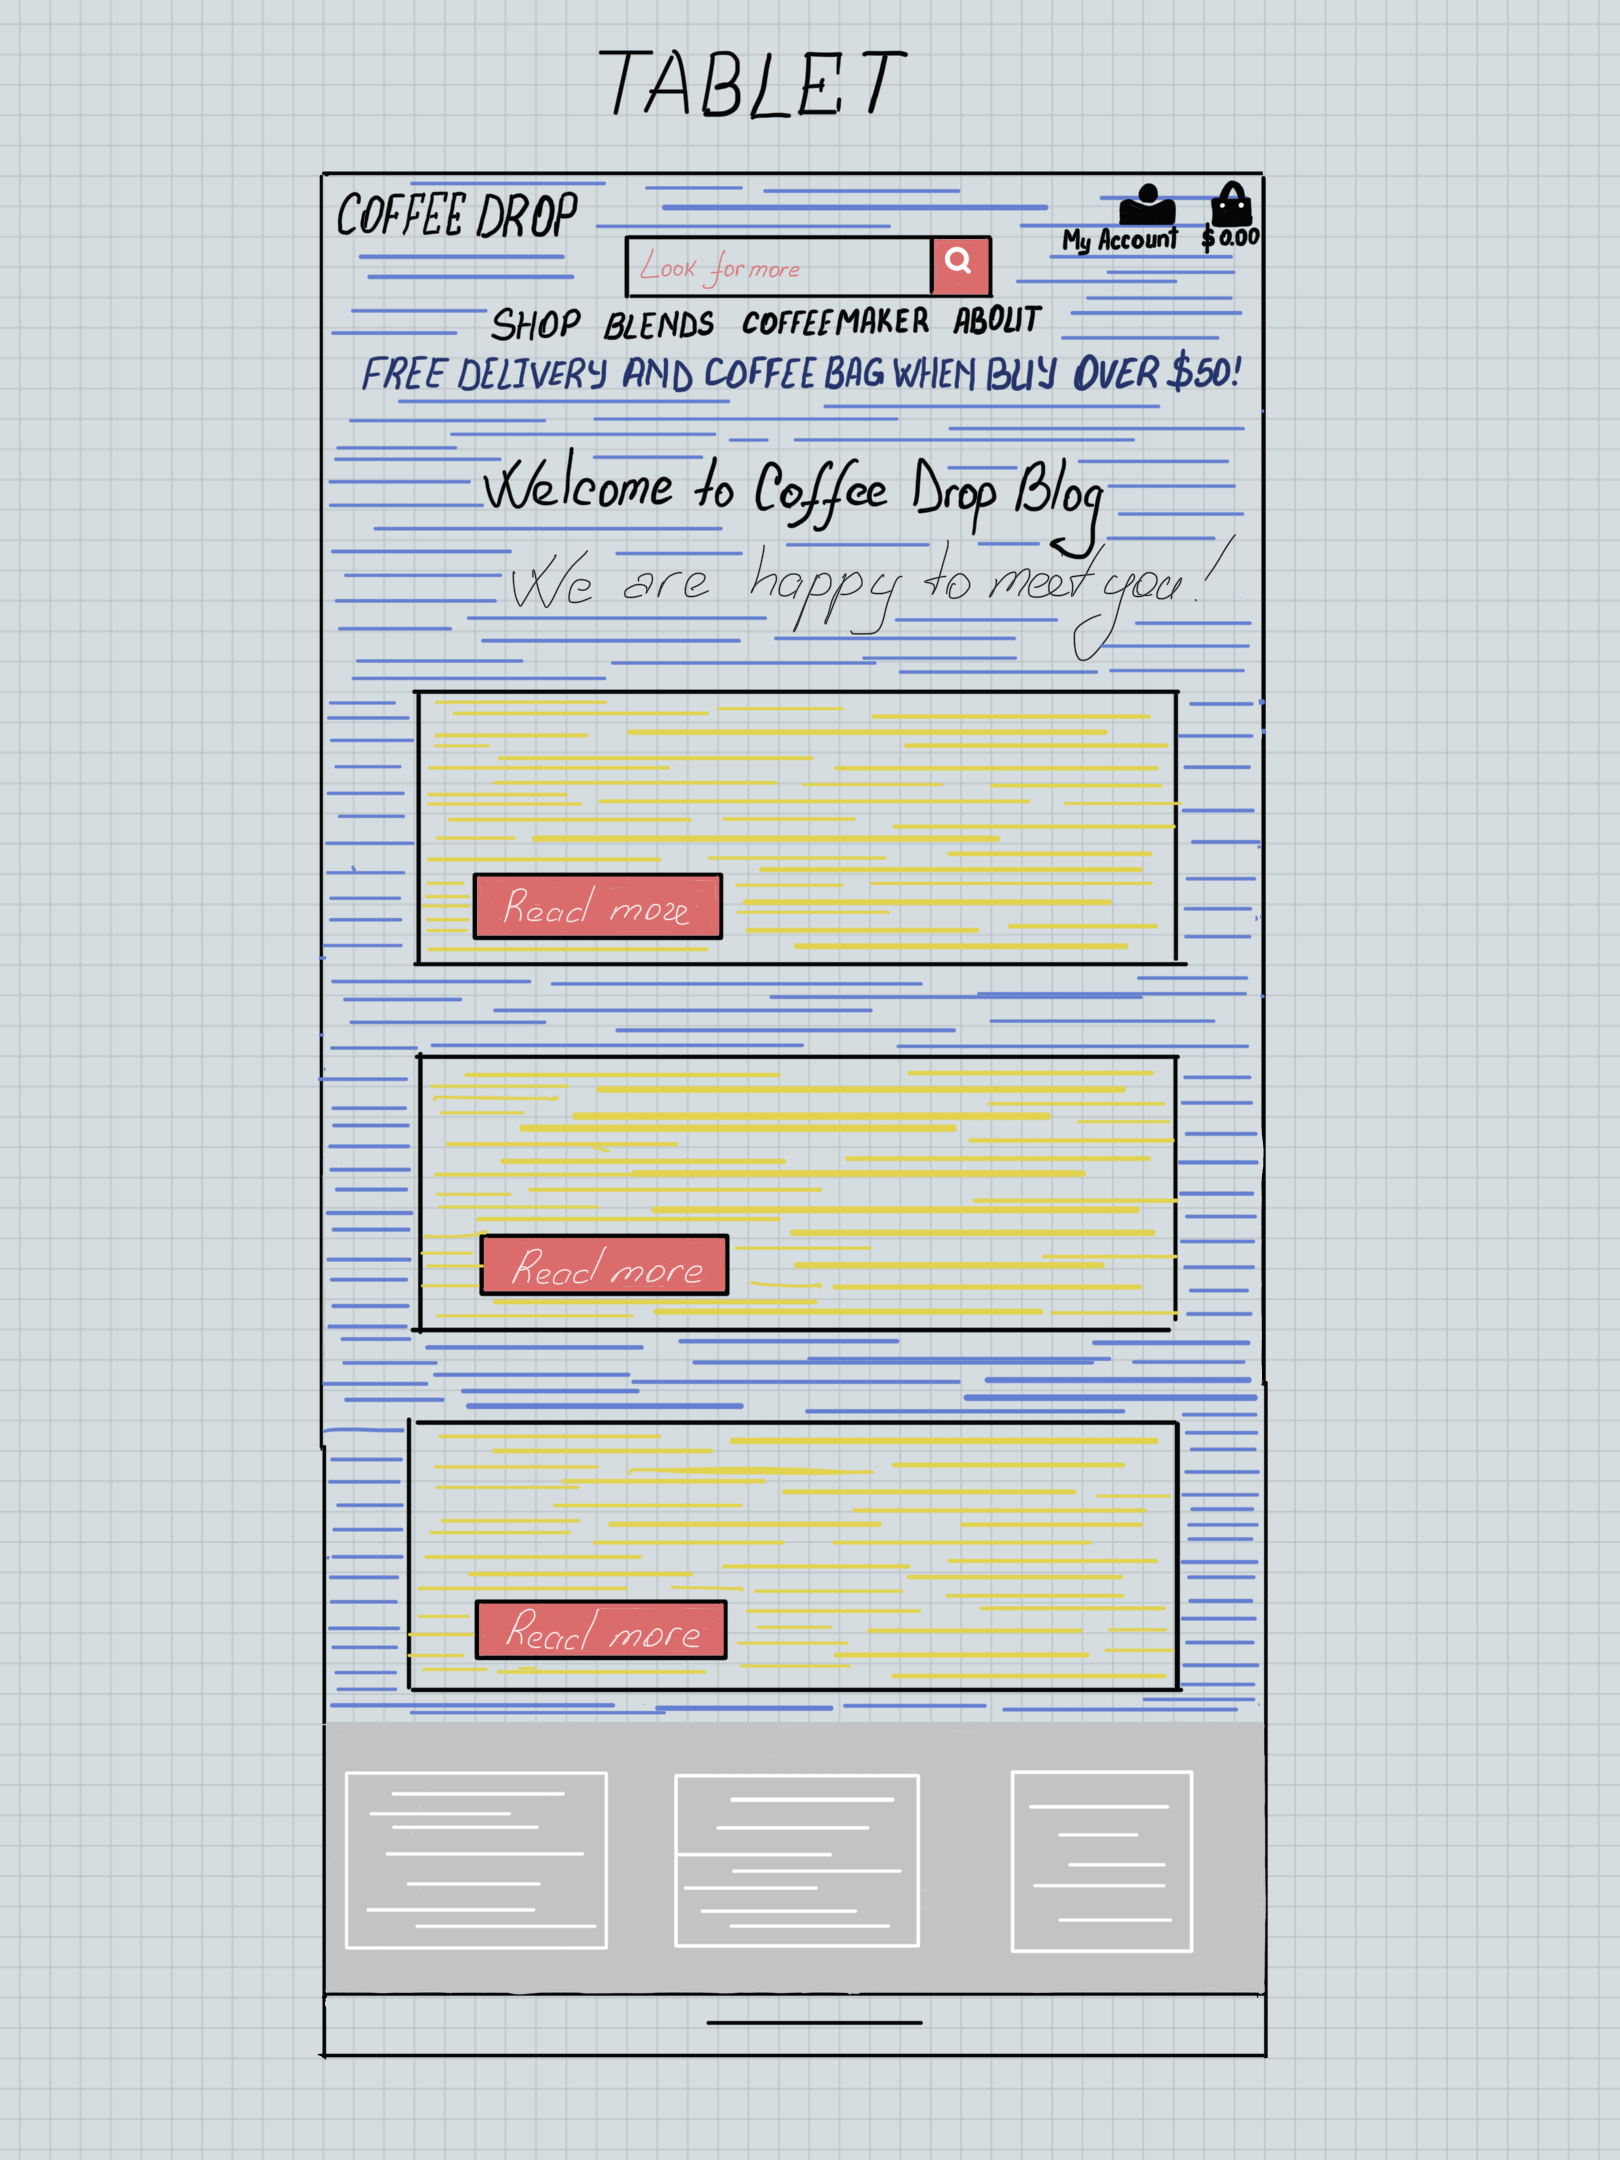 TABLET
COFFEE DROP
My Account $0.00
Look for more
SHOP BLENDS COFFEEMAKER ABOUT
FREE DELIVERY AND COFFEE BAG WHEN BUY OVER $50!
Welcome to Coffee Drop Blog
We are happy to meet you!
Read more
Read more
Read more